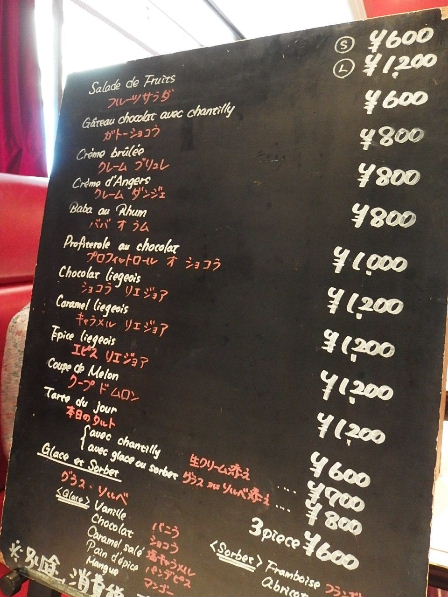 Salade de Fruits Ⓢ ¥600
フルーツサラダ Ⓛ ¥1,200
Gâteau chocolat avec chantilly ¥600
ガトーショコラ
Crème brûlée ¥800
クレーム ブリュレ
Crème d'Angers ¥800
クレーム ダンジェ
Baba au Rhum ¥800
ババ オ ラム
Profiterole au chocolat ¥1,000
プロフィットロール オ ショコラ
Chocolat liegeois ¥1,200
ショコラ リエジョア
Caramel liegeois ¥1,200
キャラメル リエジョア
Epice liegeois ¥1,200
エピス リエジョア
Coupe de Melon ¥1,200
クープ ド ムロン
Tarte du jour ¥600
本日のタルト
avec chantilly 生クリーム添え .... ¥700
avec glace ou sorbet グラス ou ソルベ添え .... ¥800
Glace et Sorbet 3 piece ¥600
グラス・ソルベ
<Glace> Vanille バニラ
Chocolat ショコラ
Caramel salé 塩キャラメル
Pain d'épice パンデピス
Mangue マンゴー
<Sorbet> Framboise
Abricot
※別途、消費税